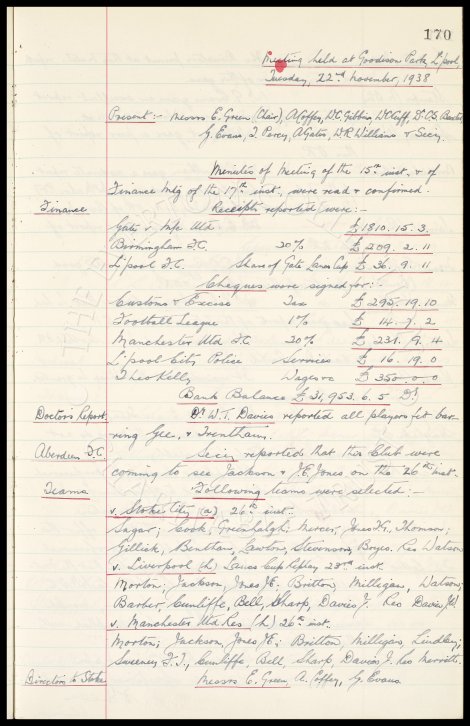 170
Meeting held at Goodison Park, L'pool,
Tuesday, 22nd November, 1938
Present :- Messrs E. Green (Chair), A. Coffey, W.C. Gibbins, W.C. Cuff, Dr. C.S. Baxter
G. Evans, T. Percy, A. Gates, W.R. Williams & Secy.
Minutes of Meeting of the 15th inst. & of
Finance Mtg of the 17th inst. were read & confirmed.
Finance Receipts reported were :-
Gate v. M/c Utd. £1810. 15. 3.
Birmingham F.C. 20% £ 209. 2. 11
L'pool F.C. Share of Gate Lancs Cup £ 36. 9. 11
Cheques were signed for :-
Customs & Excise Tax £ 295. 19. 10
Football League 1% £ 14. 7. 2
Manchester Utd F.C. 20% £ 231. 9. 4
L'pool City Police Services £ 16. 19. 0
Theo Kelly Wages £ 350. 0. 0
Bank Balance £21,953. 6. 5 Dr.
Doctor's Report. Dr W.T. Davies reported all players fit bar-
ring Gee, & Trentham.
Aberdeen F.C. Secy reported that this Club were
coming to see Jackson & J.E. Jones on the 26th inst.
Teams Following teams were selected :-
v. Stoke City (a) 26th inst.
Sagar; Cook, Greenhalgh; Mercer, Jones T.G., Thomson;
Gillick, Bentham, Lawton, Stevenson, Boyes. Res Watson
v. Liverpool (h) Lancs Cup Replay 23rd inst.
Morton; Jackson, Jones J.E. Britton Milligan, Watson;
Barber, Cunliffe, Bell, Sharp, Davies J. Res Davies
v. Manchester Utd Res (h) 26th inst.
Morton; Jackson, Jones J.E.; Britton, Milligan, Lindley;
Sweeney F.T., Cunliffe, Bell, Sharp, Davies J. Res Merritt.
Directors to Stoke Messrs E. Green, A. Coffey, G. Evans.